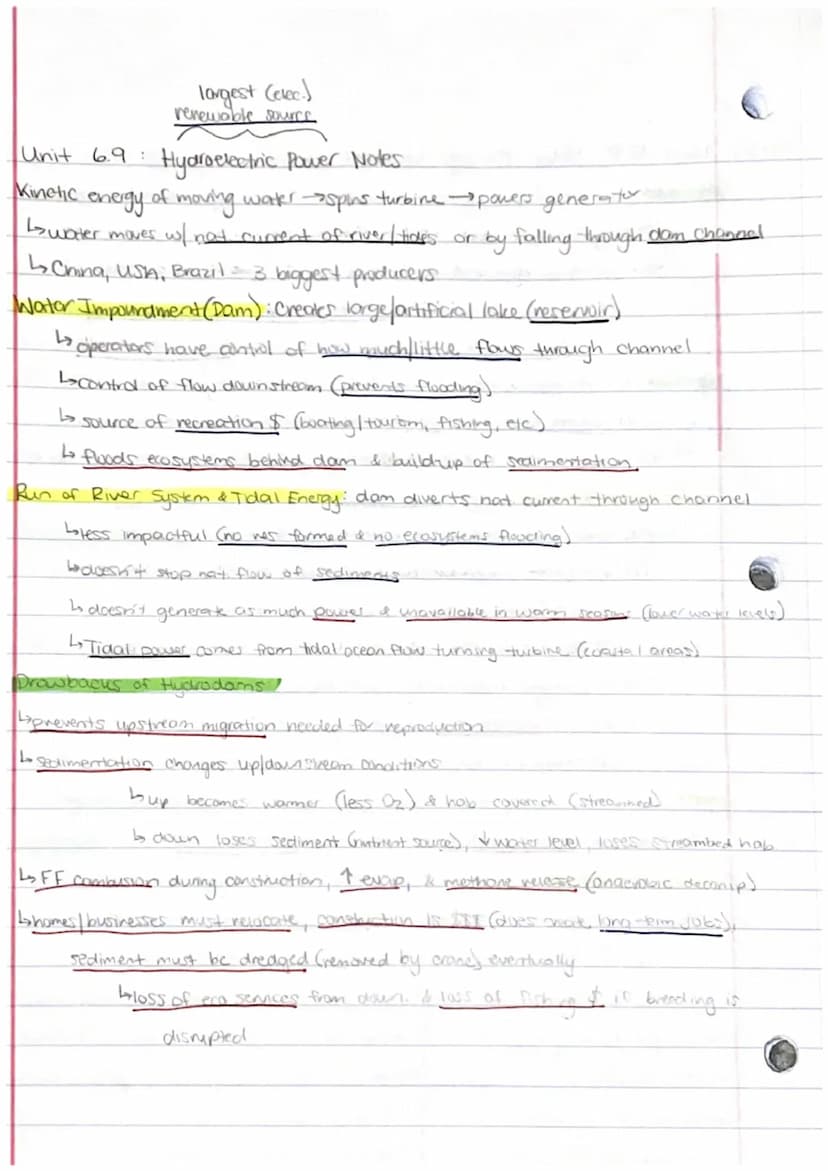 largest (elec.)
renewable source
Unit 6.9: Hydroelectric Power Notes
Kinetic energy of moving water → spins turbine → powers generator
↳ water moves w/ nat current of river/tides or by falling through dam channel
↳ China, USA, Brazil = 3 biggest producers
Water Impoundment (Dam): Creates large/artificial lake (reservoir)
↳ operators have control of how much/little flows through channel
↳ control of flow downstream (prevents flooding)
↳ source of recreation $ (boating/tourism, fishing, etc)
↳ floods ecosystems behind dam & buildup of sedimentation
Run of River System & Tidal Energy: dam diverts nat current through channel
↳ less impactful (no res formed & no ecosystems flooding)
↳ doesn't stop nat. flow of sediments
↳ doesn't generate as much power & unavailable in warm seasons (lower water levels)
↳ Tidal power comes from tidal ocean flow turning turbine (coastal areas)
Drawbacks of Hydrodams
↳ prevents upstream migration needed for reproduction
↳ sedimentation changes up/downstream conditions
↳ up becomes warmer (less O2) & hab covered
↳ down loses sediment (nutrient source), ↓ water level, loses streambed hab
↳ FF combusion during construction, ↑ evap, & methane release (anaerobic decomp)
↳ homes/businesses must relocate, construction is (does long-term jobs),
sediment must be dredged (removed by crane) eventually
↳ loss of eco services from down. & loss of fishing $ if breeding is
disrupted